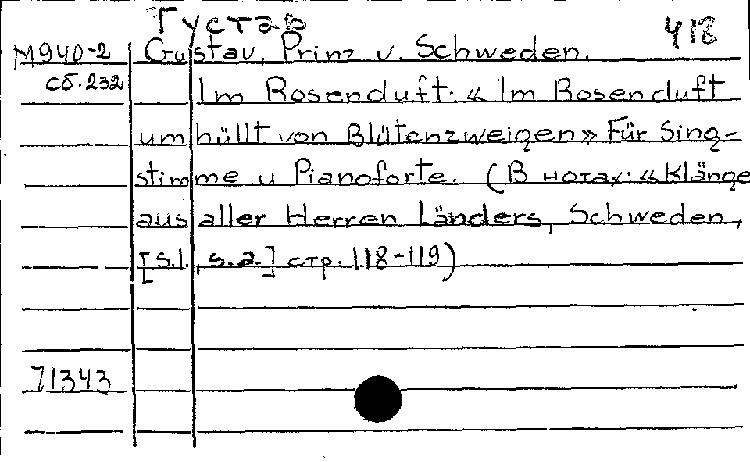 Густав 418
М940-2 Gustav, Prinz v. Schweden.
сб. 232 Im Rosenduft. « Im Rosenduft
umhüllt von Blütenzweigen» Für Sing-
stimme u Pianoforte. (В нотах: «Klänge
aus aller Herren Länders, Schweden,
[s.l., s.a.] стр. 118-119)
71343